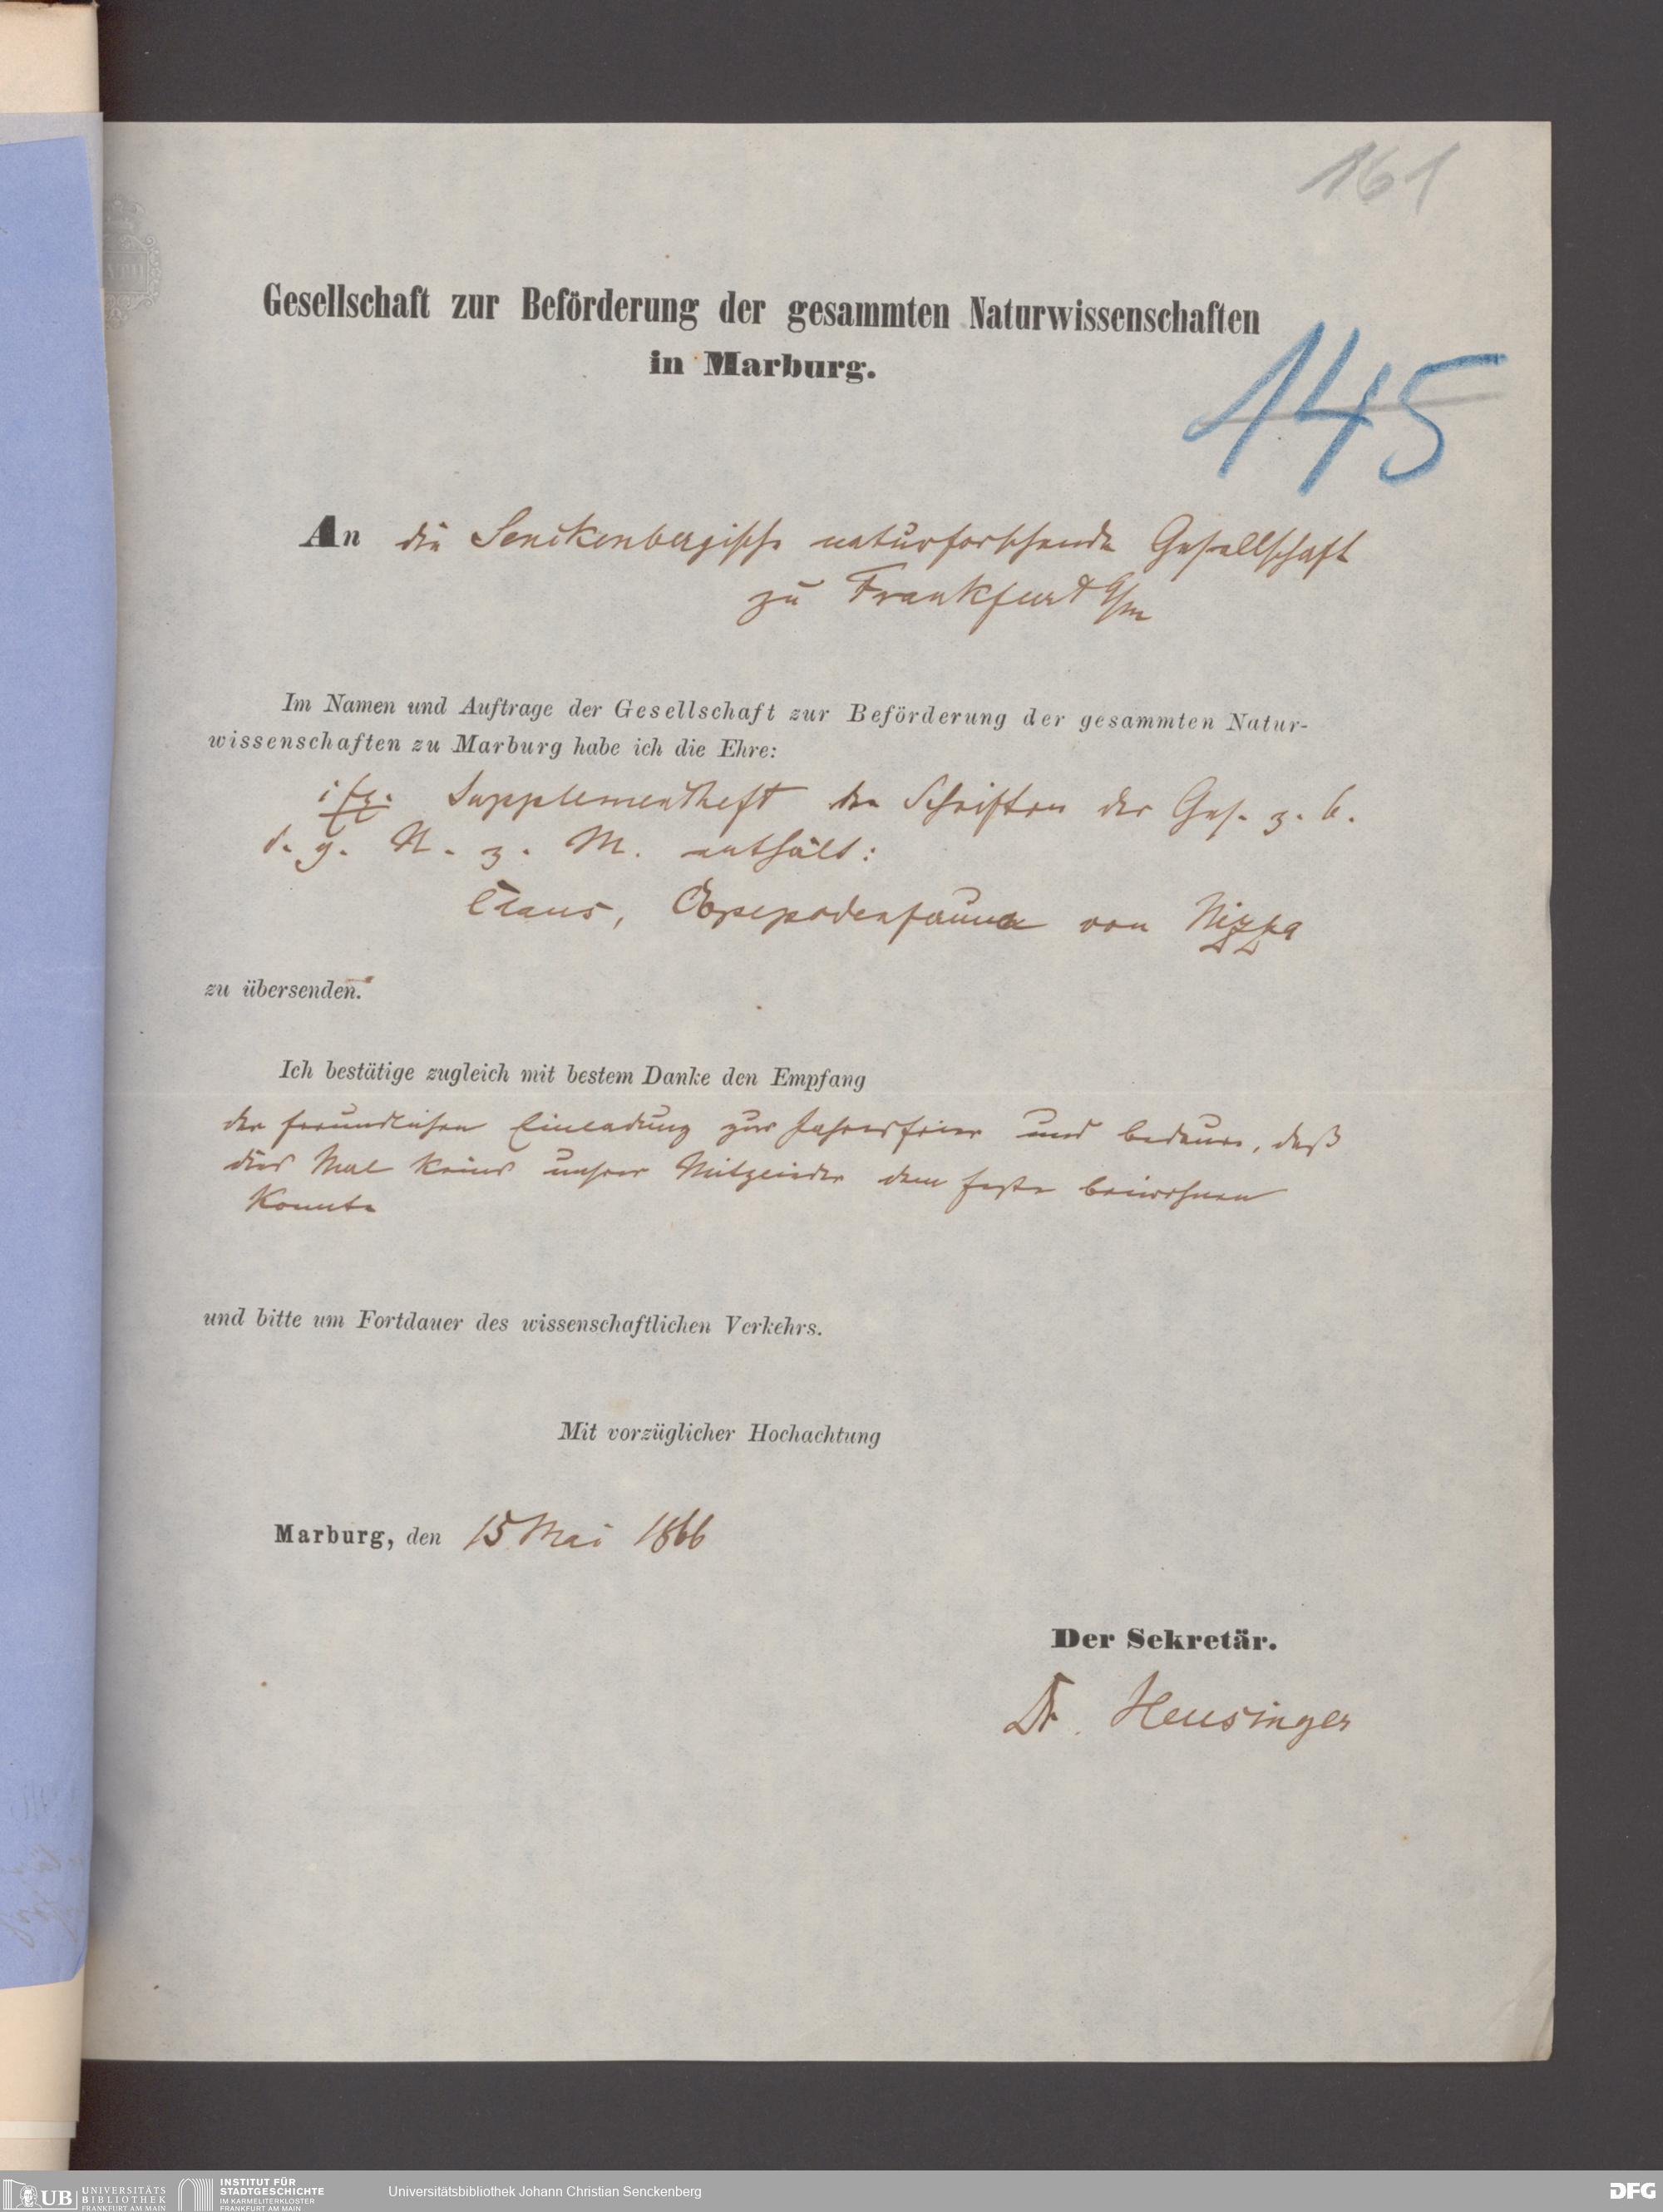 161
Gesellschaft zur Beförderung der gesammten Naturwissenschaften
in Marburg.
145
An die Senckenbergische naturforschende Gesellschaft
zu Frankfurt a/m
Im Namen und Auftrage der Gesellschaft zur Beförderung der gesammten Natur-
wissenschaften zu Marburg habe ich die Ehre:
Supplementheft der Schriften der Ges. z. b.
d. g. N. z. M. enthält:
Claus, Copepodenfauna von Nizza
zu übersenden.
Ich bestätige zugleich mit bestem Danke den Empfang
der freundlichen Einladung zur Jahresfeier und bedaure, daß
dies Mal keins unsrer Mitglieder dem Feste beiwohnen
konnte
und bitte um Fortdauer des wissenschaftlichen Verkehrs.
Mit vorzüglicher Hochachtung
Marburg, den 15 Mai 1866
Der Sekretär.
Dr. Heusinger
UB UNIVERSITÄTS
BIBLIOTHEK
FRANKFURT AM MAIN
INSTITUT FÜR
STADTGESCHICHTE
IM KARMELITERKLOSTER
FRANKFURT AM MAIN
Universitätsbibliothek Johann Christian Senckenberg
DFG